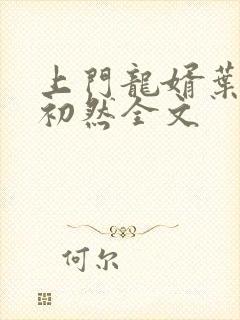 上門龍婿葉
初然全文
何尔